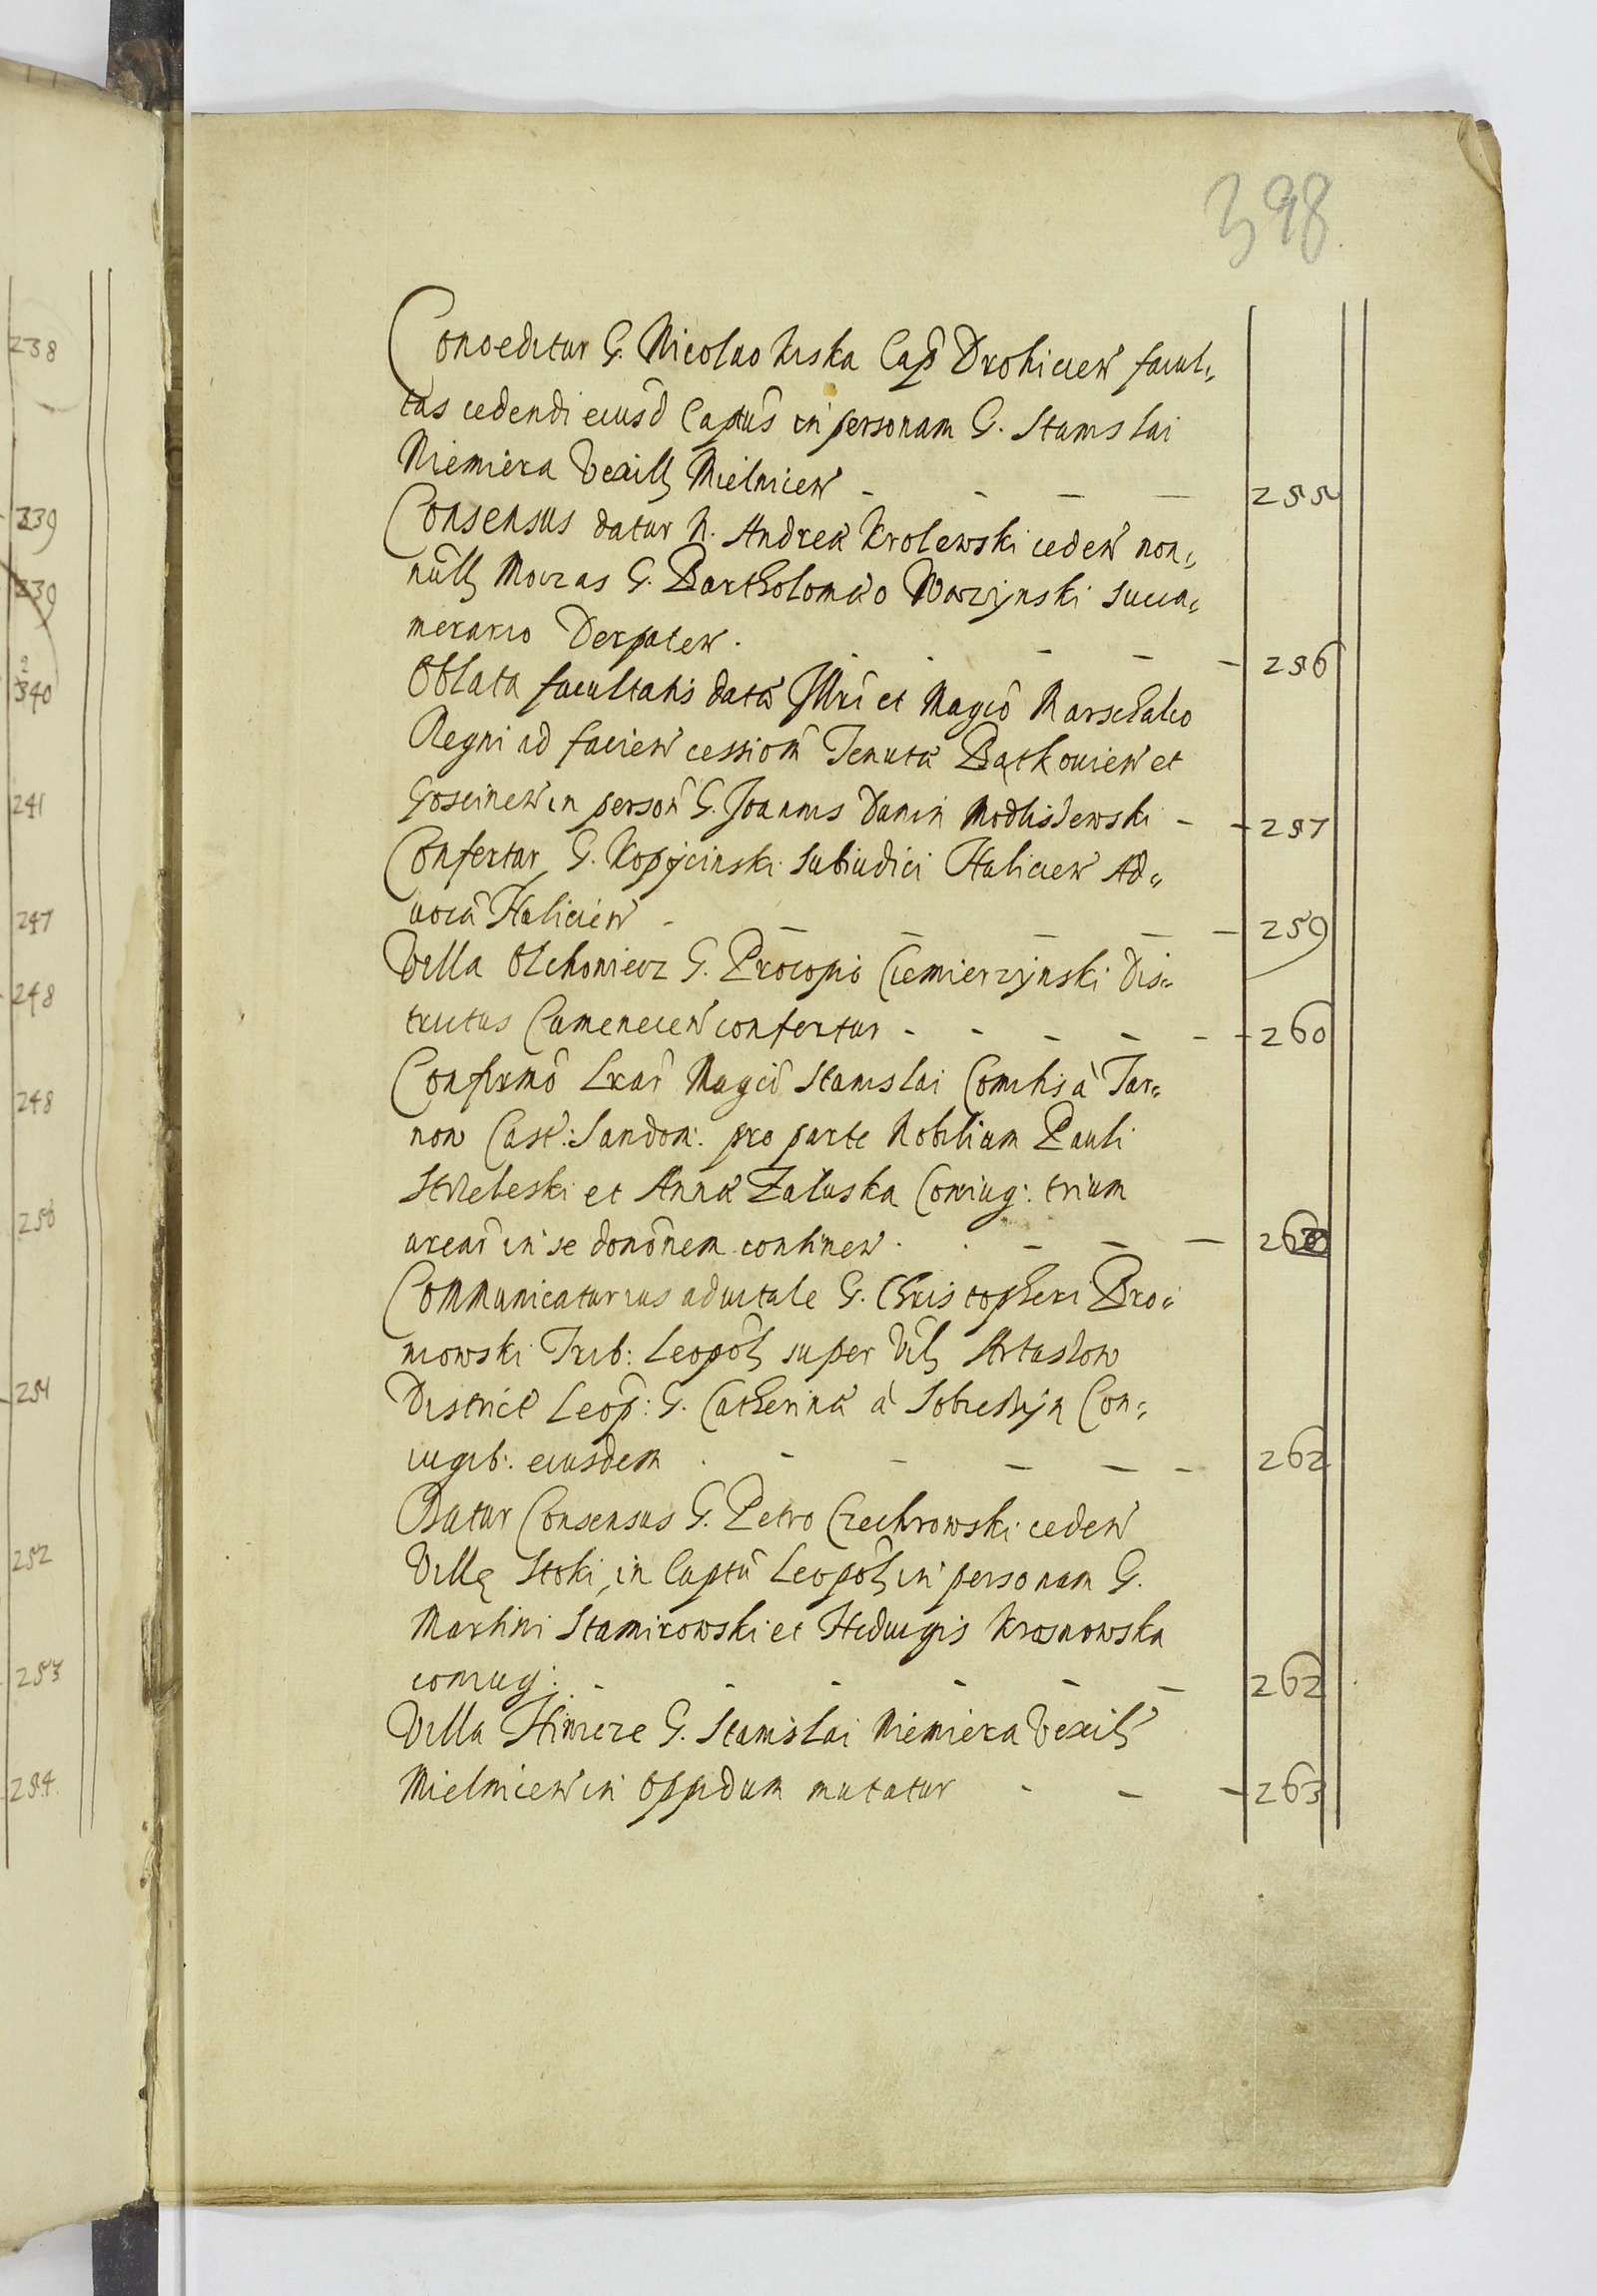 398
Conceditur G. Nicolao Kiska Cap Drohicien facul„
tas cedendi eiusd Captus in personam G. Stanislai
Niemiera Vexill Mielnicen - - - - 255
Consensus datur N. Andreæ Krolewski ceden non„
null G. Bartholomæo Warzynski Succa„
merario Derpaten. - - - - 256
Oblata facultatis datæ Illri et Magco Marschalco
Regni ad facien cession Tenutæ Bątkowien et
Goscinen in person G. Joannis Danin Modlisewski - - 257
Confertur G. Kopycinski Subiudici Halicien Ad„
uocã Halicien - - - - - - 259
Villa Olchowiecz G. Procopio Ciemierzynski Dis„
trictus Camenecen confertur - - - - - 260
Confirmõ Lrar Magci Stanislai Comitis à Tar„
now Cast: Sandom: pro parte Nobilium Pauli
Strzeleski et Annæ Zaluska Coniug: trium
arear in se donõnem continen. - - - -
Communicatur ius aduitale G. Christopheri Bro„
niowski Trib: Leopol super Vil Artasow
District Leop: G. Catherinæ à Conz
iugib: eiusdem - - - - - 262
Datur Consensus G. Petro Czechrowski ceden
Villę Stoki, in Captu Leopol in personam G.
Martini Stamirowski et Heduigis Krosnowska
coniug: - - - - - - 262
Villa G. Stanislai Niemiera Vexil
Mielnicen in oppidum mutatur - - - 263
238
239
239
2
340
241
247
248
248
250
251
252
253
254.